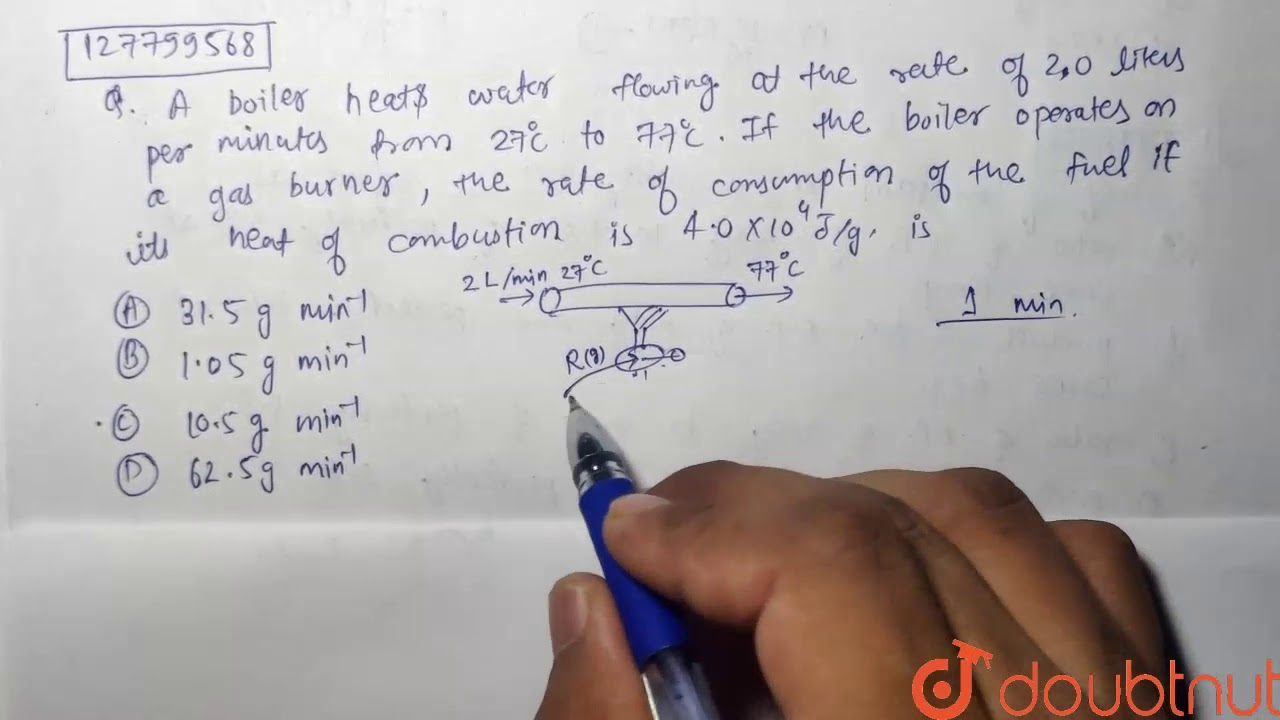 127799568
Q. A boiler heats water flowing at the rate of 2.0 liters
per minutes from 27°C to 77°C. If the boiler operates on
a gas burner, the rate of consumption of the fuel if
its heat of combustion is 4.0 X 10⁴ J/g. is
2 L/min 27°C 77°C
(A) 31.5 g min⁻¹
1 min.
(B) 1.05 g min⁻¹
R(g)
(C) 10.5 g min⁻¹
(D) 62.5g min⁻¹
doubtnut